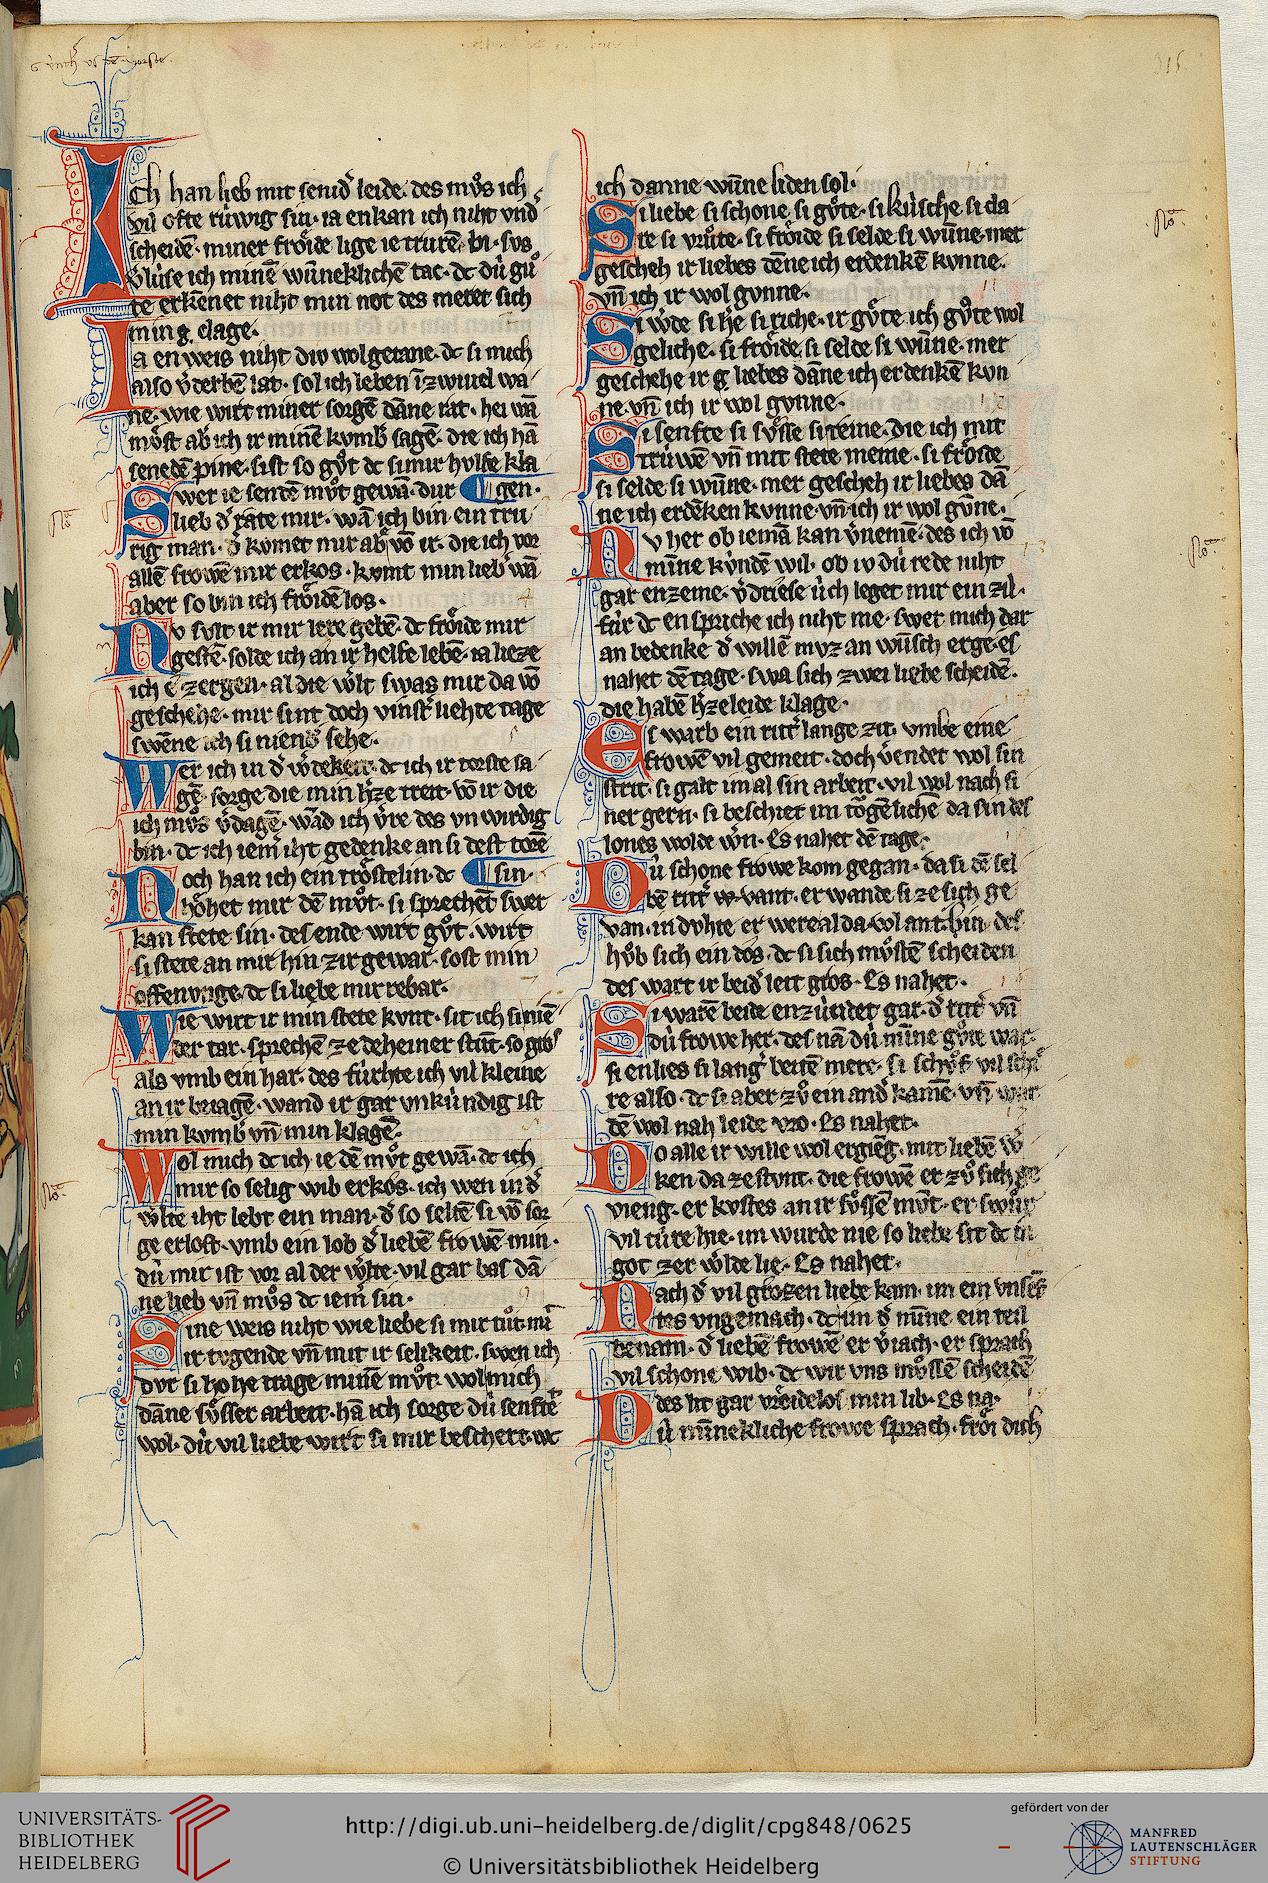 Ich han lieb mit senid̾ leide. des mvͦs ich
vil ofte rúwig sin. ia enkan ich niht vnd̾
scheidē. miner froͤide lige ie trurē. bi. svs
v̾lúse ich minē wūneklichē tac. dc dú guͦ
te erkēnet niht min not des meret sich
min g. clage.
Ia en weis niht dú wolgetane. dc si mich
also v̾derbē lat. sol ich leben ī zwiuel wa
ne. wie wirt miner sorgē dāne rat. hei wā
moͤst ab̾ ich ir minē kvmb̾ sagē. die ich hā
senedē pine. sist so gvͦt dc si mir hvlfe kla
Swer ie sentē mvͦt gewā. dur ¶ gen.
lieb d̾ rate mir. wā ich bin ein tru
rig man. d̾ kvmet mir ab̾ vō ir. die ich vor
allē frowē mir erkos. kvmt min lieb̾ wā
aber so bin ich froͤidē los.
Nv svlt ir mir lere gebē. dc froͤide mir
gestē. solde ich an ir helfe lebē. ia lieze
ich e zergen. al die w̾lt swas mir da vō
geschehe. mir sint doch vinst̾ liehte tage
swēne ich si nieng̾ sehe.
Wer ich in d̾ w̾dekeit. dc ich ir torste sa
gē. sorge die min h̾ze treit. vō ir die
ich mvͦs v̾dagē. wād ich v̾re des vnwirdig
bin. dc ich iem̾ iht gedenke an si dest torē
Noch han ich ein troͤstelin. dc ¶ sin.
hoͤhet mir dē mvͦt. si sprechēt swer
kan stete sin. des ende wirt gvͦt. wirt
si stete an mir hin zir gewar. sost min
offenvnge. dc si liebe mir rebar.
Wie wirt ir min stete kvnt. sit ich si niē
der tar. sprechē ze deheiner stūt. so gros
als vmb ein har. des fúrhte ich vil kleine
an ir bejagē. wand ir gar vnkúndig ist
min kvmb̾ vn̄ min klagē.
Wol mich dc ich ie dē mvͦt gewā. dc ich
mir so selig wib erkos. ich wen in d̾
w̾lte iht lebt ein man. d̾ so seltē si vō sor
ge erlost. vmb ein lob d̾ liebē frowē min.
dú mir ist vor al der w̾lte. vil gar bas dā
ne lieb vn̄ mvͦs dc iem̾ sin.
Sine weis niht wie liebe si mir tuͦt. mī
ir tvgende vn̄ mit ir selikeit. swen ich
dvr si hohe trage minē mvͦt. wol mich
dāne svͤsser arbeit. hā ich sorge dú senftē
wol. dú vil liebe wirt si mir beschert. wc
ich danne wūne liden sol.
Si liebe si schone si gvͦte. si kúsche si da
re si vrvͦte. si froͤide si selde si wūne. mer
gescheh ir liebes dēne ich erdenkē kvnne.
vn̄ ich ir wol gvnne.
Si w̾de si h̾e si riche. ir gvͤte ich gvͦte wol
geliche. si froͤide si selde si wūne. mer
geschehe ir g liebes dāne ich erdenkē kvn
ne. vn̄ ich ir wol gvnne.
Si senfte si svͤsse si reine. die ich mit
trúwē vn̄ mit stete meine. si froͤide
si selde si wūne. mer gescheh ir liebes dā
ne ich erdēken kvnne. vn̄ ich ir wol gvn̄e.
Nv her ob iemā kan v̾nemē. des ich vō
mīne kúndē wil. ob iv dú rede niht
gar enzeme. v̾driese úch leget mir ein zil.
fúr dc en spriche ich niht me. swer mich dar
an bedenke d̾ willē mvz an wūsch erge. es
nahet dē tage. swa sich zwei liebe scheidē.
die habē h̾zeleide klage.
Es warb ein ritt̾ lange zit. vmbe eine
frowē vil gemeit. doch v̾endet wol sin
strit. si galt im al sin arbeit. vil wol nach si
ner gern. si beschiet im toͮgēlichē da sin des
lones wolde w̾n. Es nahet dē tage.
Dú schone frowe kom gegan. da si dē sel
bē ritt̾ vant. er wande si ze sich ge
van. in dvhte er were al da wol ant. hin des
hvͦb sich ein dos. dc si sich mvͦstē scheiden
des wart ir beid̾ leit gros. Es nahet.
Si warē beide enzúndet gar. d̾ ritt̾ vn̄
dú frowe her. des nā dú mīne gvͦte war.
si enlies si lang̾ beitē mere. si schvͦf vil schi
re also. dc si aber zvͦ ein and̾ kamē. vn̄ wur
dē wol nah leide vro. Es nahet.
Do alle ir wille wol ergieng. mit liebē w̾
ken da ze stvnt. die frowē er zvͦ sich ge
vieng. er kvstes an ir svͤssē mvͦt. er swuͦr
vil túre hie. im wurde nie so liebe sit dc in
got zer w̾lde lie. Es nahet.
Nach d̾ vil grozen liebe kam. im ein vnsēf
tes vngemach. dc im d̾ mīne ein teil
benam. d̾ liebē frowē er v̾iach. er sprach
vil schone wib. dc wir vns mvͤssē scheidē
des lit gar vreͤidelos min lib. Es na.
Dú mīnekliche frowe sprach. froͤi dich
315
UNIVERSITÄTS-
BIBLIOTHEK
HEIDELBERG
http://digi.ub.uni-heidelberg.de/diglit/cpg848/0625
© Universitätsbibliothek Heidelberg
gefördert von der
MANFRED
LAUTENSCHLÄGER
STIFTUNG